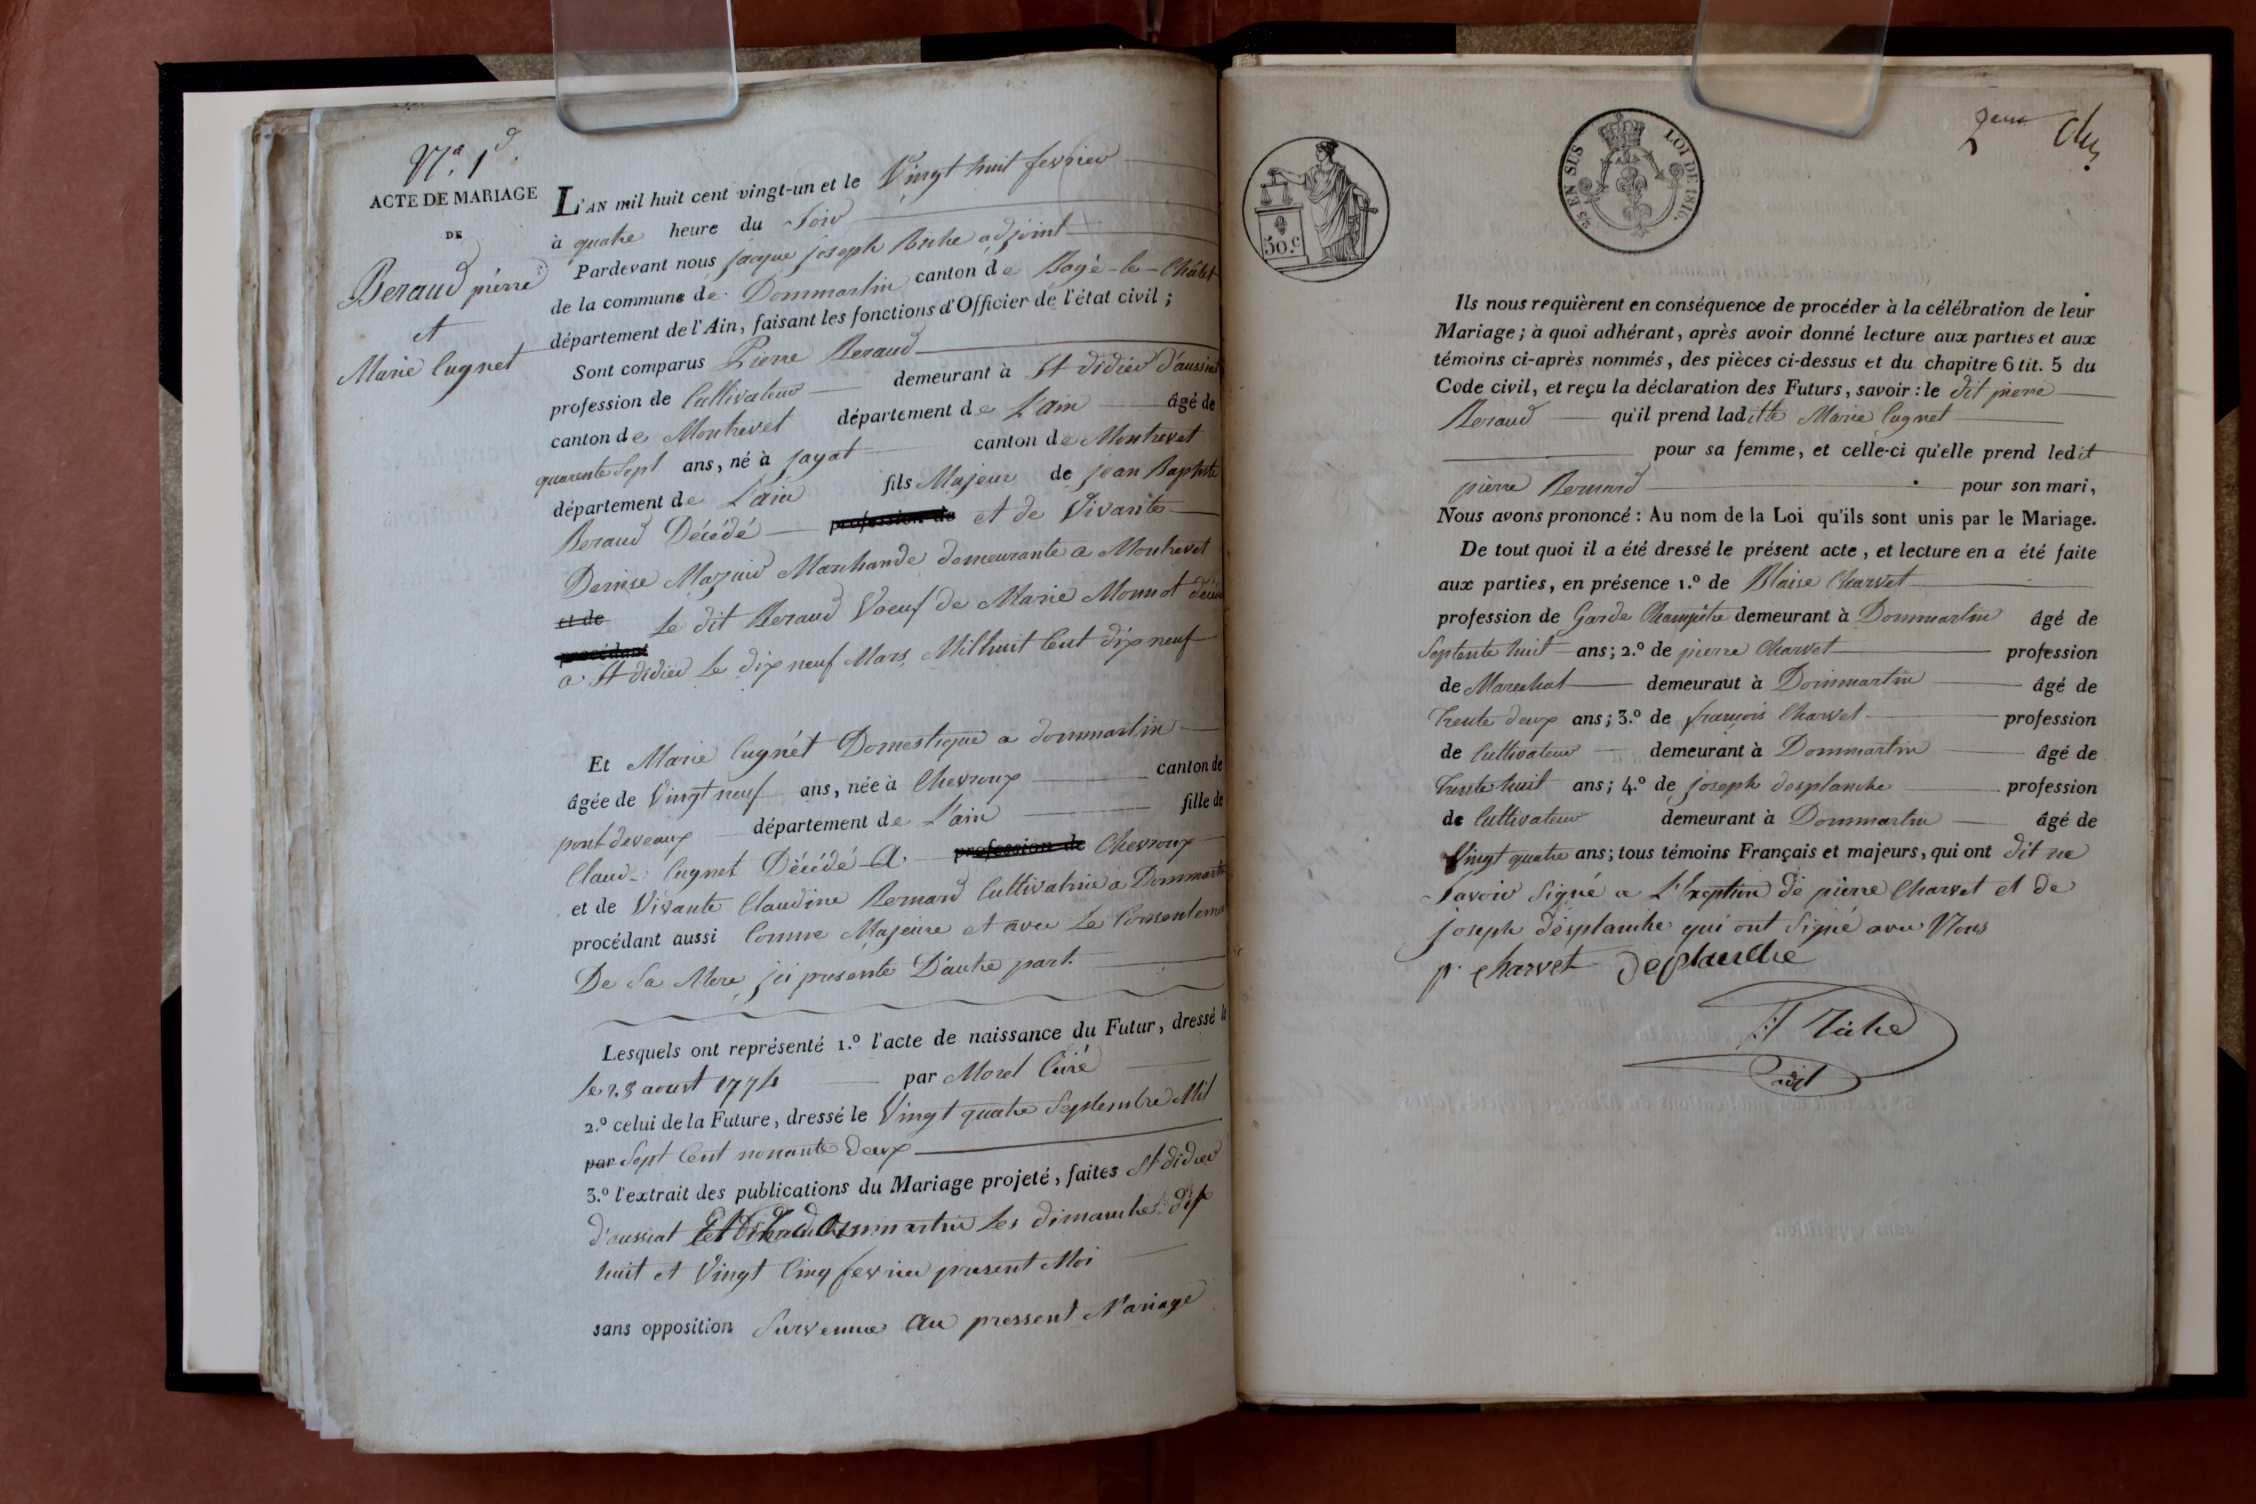 N.º 1
ACTE DE MARIAGE
DE
Beraud pierre
et
Marie Cugnet
L'AN mil huit cent vingt-un et le Vingt huit fevrier
à quatre heure du Soir
Pardevant nous jacque joseph Riche adjoint
de la commune de Dommartin canton de Bagé-le-Châtel
département de l'Ain, faisant les fonctions d'Officier de l'état civil ;
Sont comparus Pierre Beraud
profession de Cultivateur demeurant à St didier d'aussiat
canton de Montrevet département de L'ain âgé de
quarente Sept ans, né à jayat canton de Montrevet
département de L'ain fils Majeur de jean Baptiste
Beraud Décédé profession de et de Vivante
Denise Mazuir Marchande demeurante a Montrevet
et de Le dit Beraud Voeuf de Marie Monnot
procédant
a St didier Le dix neuf Mars Mil huit Cent dix neuf
Et Marie Cugnét Domestique a dommartin
âgée de Vingt neuf ans, née à Chevroux canton de
pont deveaux département de L'ain fille de
Claud Cugnet Décédé A profession de Chevroux
et de Vivante Claudine Bernard Cultivatrice a Dommartin
procédant aussi Comme Majeure et avec Le Consentement
De Sa Mere ici presente D'autre part.
Lesquels ont représenté 1.º l'acte de naissance du Futur, dressé le
le 28 aoust 1774 par Morel Curé
2.º celui de la Future, dressé le Vingt quatre Septembre Mil
par Sept Cent nonante deux
3.º l'extrait des publications du Mariage projeté, faites St didier
d'aussiat Dommartin Les dimanche dix
huit et Vingt Cinq fevrier present Moi
sans opposition Survenue au pressent Mariage
50.c
25 EN SUS
LOI DE 1816.
Ils nous requièrent en conséquence de procéder à la célébration de leur
Mariage ; à quoi adhérant, après avoir donné lecture aux parties et aux
témoins ci-après nommés, des pièces ci-dessus et du chapitre 6 tit. 5 du
Code civil, et reçu la déclaration des Futurs, savoir : le dit pierre
Beraud qu'il prend laditte Marie Cugnet
pour sa femme, et celle-ci qu'elle prend ledit
pierre Bernard pour son mari,
Nous avons prononcé : Au nom de la Loi qu'ils sont unis par le Mariage.
De tout quoi il a été dressé le présent acte, et lecture en a été faite
aux parties, en présence 1.º de Blaise Charvet
profession de Garde Champêtre demeurant à Dommartin âgé de
Septente huit ans ; 2.º de pierre Charvet profession
de Marechal demeurant à Dommartin âgé de
Trente deux ans ; 3.º de françois Charvet profession
de Cultivateur demeurant à Dommartin âgé de
Trente huit ans ; 4.º de joseph desplanche profession
de Cultivateur demeurant à Dommartin âgé de
Vingt quatre ans ; tous témoins Français et majeurs, qui ont dit ne
Savoir Signé a L'Exeption de pierre Charvet et de
joseph desplanche qui ont Signé avec Nous
p. charvet deplanche
Riche
adjt